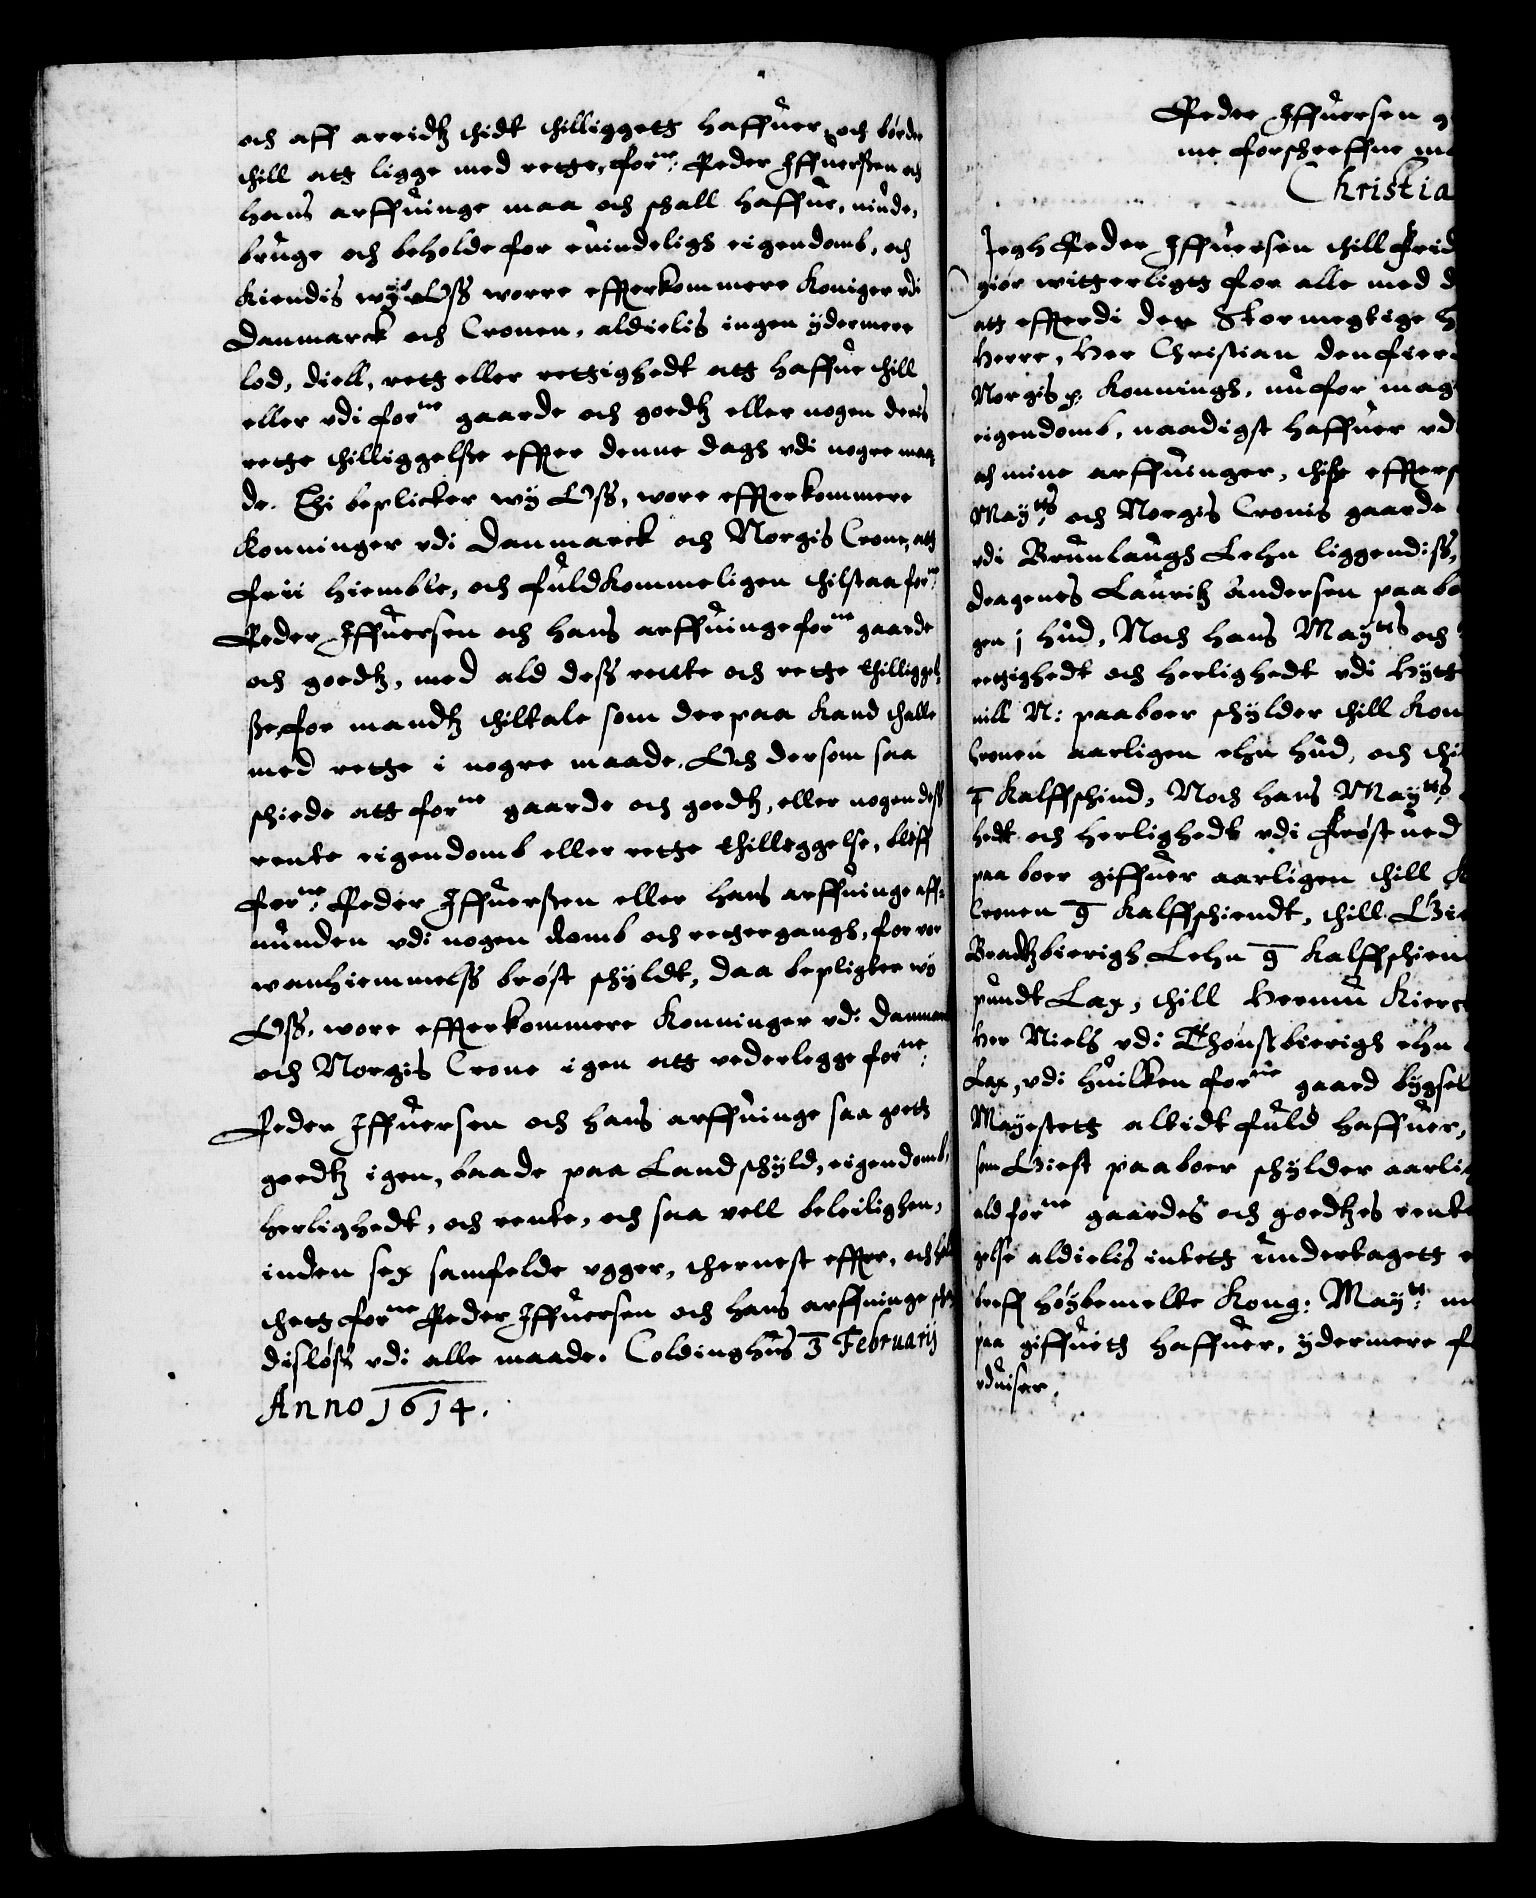 och aff arridtz thidt thilliggett haffuer, och børde
thill att ligge med rette, forne: Peder Iffuerßen och
hans arffuinge maa och schall haffue, niude,
bruge och beholde for euindeligh eigendomb, och
kiendis wij Oß worre effterkommere Koniger vdi
Danmarck och Cronen, aldielis ingen ÿdermere
lod, diell, rett eller rettighedt att haffue thill
eller vdi forne gaarde och goedtz eller nogen deris
rette thilliggelße effter denne dagh vdi nogre maa
de. Thi beplicter wÿ Oß, wore effterkommere
Konninger vdi Danmarck och Norgis Crone, att
frii hiemble, och fuldkommeligen thilstaa forne:
Peder Iffuersen och hans arffuinge forne gaarde
och goedtz, med ald deß rentte och rette thilliggel
ße, for mandtz thiltale som der paa kand thalle
med rette i nogre maade. Och dersom saa
schiede att forne gaarde och goedtz, eller nogen deß
rente eigendomb eller rette thilleggelse, bleff
forne: Peder Iffuerßen eller hans arffuinge aff-
uunden vdi nogen domb och rettergangh, for vor
wanhiemmelß brøst schÿldt, daa bepligter wÿ
Oß, wore effterkommere Konninger vdi Danmarck
och Norgis Crone igen att vederlegge forne:
Peder Iffuersen och hans arffuinge saa gott
goedtz igen, baade paa Landschÿld, eigendomb,
herlighedt, och rente, och saa vell beleilighen,
inden sex samfelde vgger, thernest effter, och hol
thett forne Peder Iffuersen och hans arffuinge scha
disløß vdi alle maade. Coldinghus 3 Februarij
Anno 1614.
Peder Iffuersen g
me forschreffne ma
Christia
Iegh Peder Iffuersen thill Frid
giør witterligt for alle med d
att effterdi den Stormegtige H
Herre, Her Christian den fierd
Norgis p. Konningh, nu for mag
eigendomb, naadigst haffuer vd
och mine arffuinger, thiße effters
Maytts och Norgis Cronis gaarde
vdi Brunlaugh Lehn liggendiß,
Lauritz Andersen paa bo
gen j hud, Noch hans Maytts och
rettighedt och herlighedt vdi Hÿtt
uill N: paaboer schÿlder thill Kon
Cronen aarligen ehn hud, och thi
4 Kalffschind, Noch hans Maytts
hedt och herlighedt vdi Frøstued
paa boer giffuer aarligen thill K
Cronen 9 Kalffschiendt, thill Gie
Bradtzbierigh Lehn 9 Kalffschien
pundt Lax, thill Hemnu Kierc
Her Niels vdi Thønsbierigh ehn
Lax, vdi huilken forne gaard bÿgsel
Mayestett altidt fuld haffuer,
som Giest paaboer schÿlder aarlig
ald forne gaardes och goedtzes rente
gelse aldielis intett undertagett e
breff høÿbemelte Kong: Maytt: m
paa giffuett haffuer, ÿdermere f
vduiser.